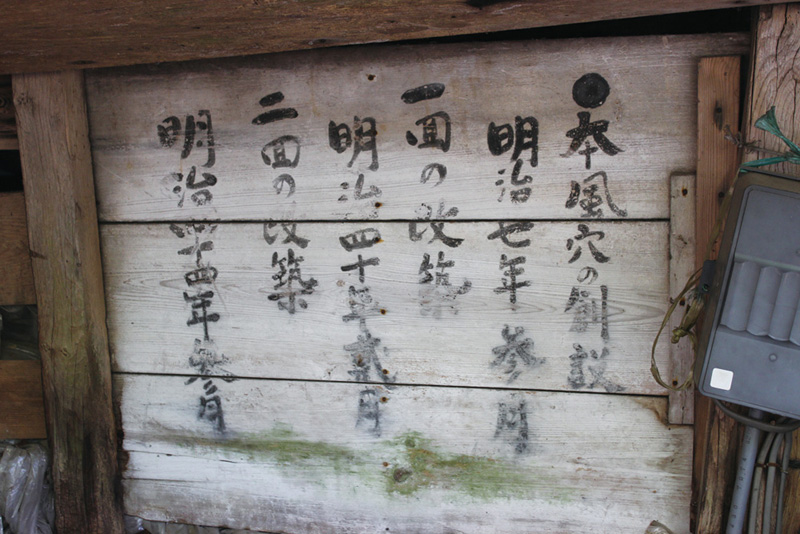 ●本風穴の創設
明治七年参月
一回の改築
明治四十年貳月
二回の改築
明治四十四年参月